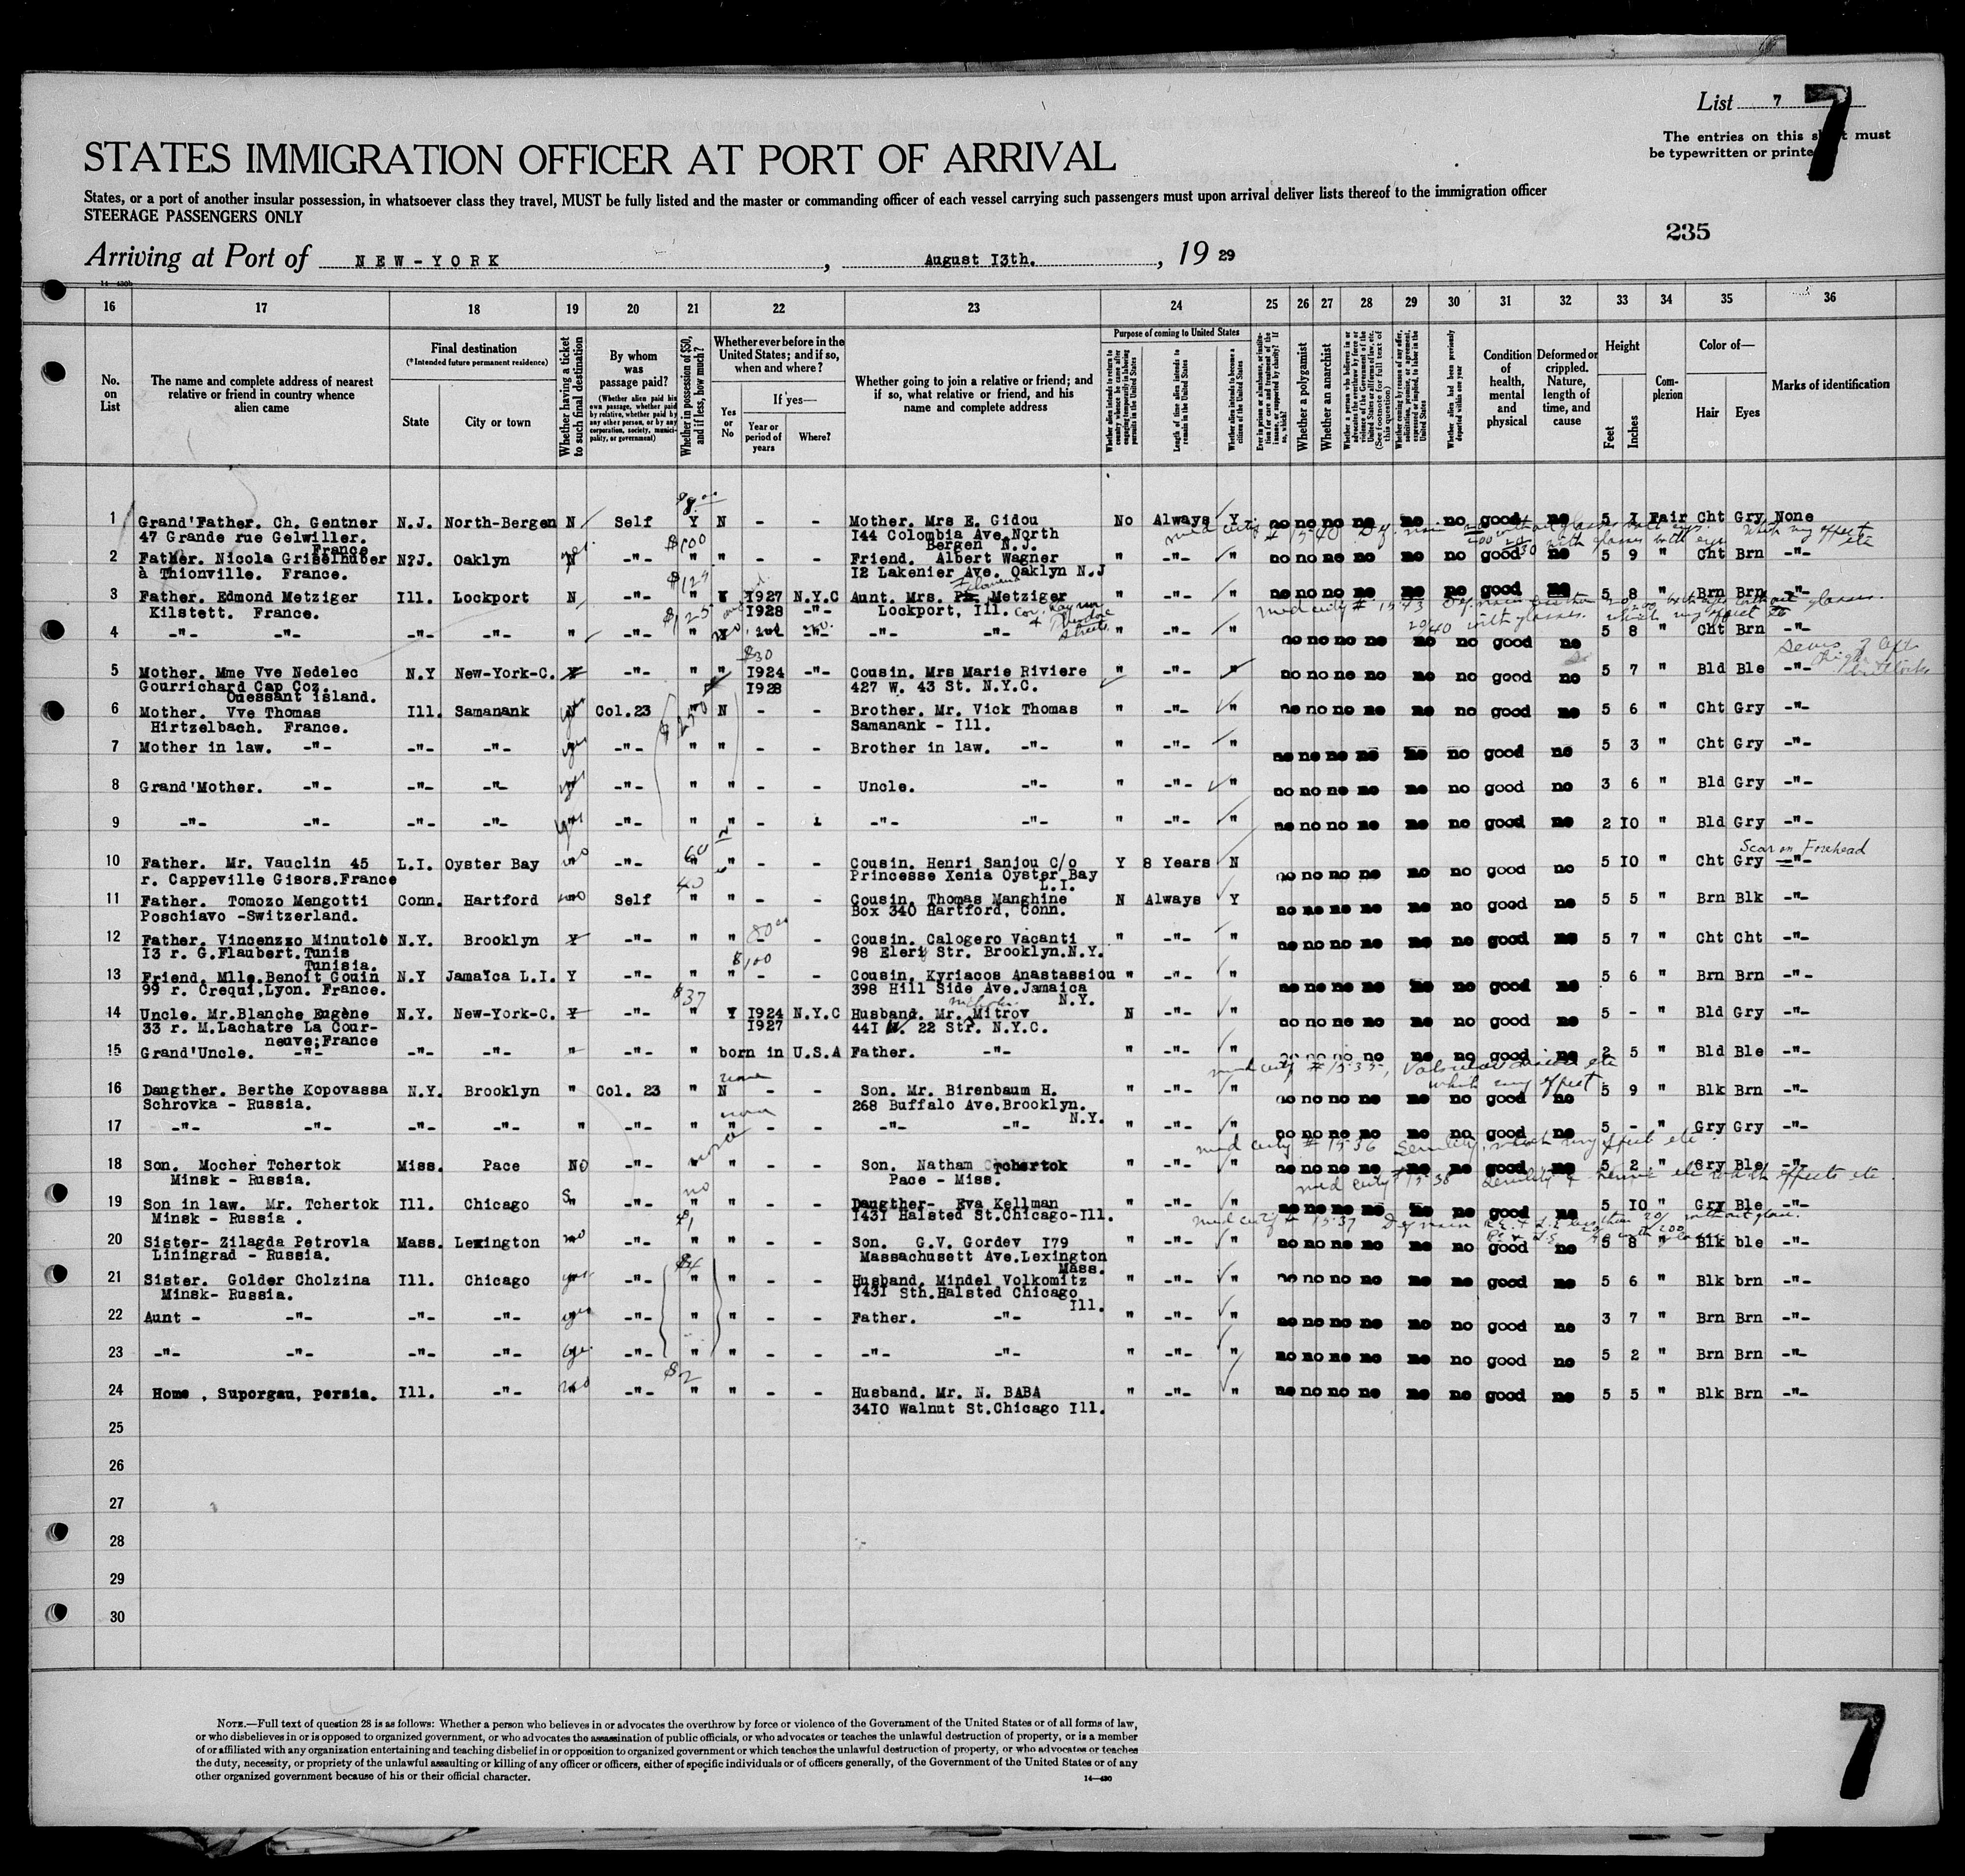 List 7
7
The entries on this sheet must
be typewritten or printed
STATES IMMIGRATION OFFICER AT PORT OF ARRIVAL
States, or a port of another insular possession, in whatsoever class they travel, MUST be fully listed and the master or commanding officer of each vessel carrying such passengers must upon arrival deliver lists thereof to the immigration officer
STEERAGE PASSENGERS ONLY
235
Arriving at Port of NEW-YORK, August I3th., 19 29
14—430b
16 17 18 19 20 21 22 23 24 25 26 27 28 29 30 31 32 33 34 35 36
No. on List
The name and complete address of nearest relative or friend in country whence alien came
Final destination
(*Intended future permanent residence)
State
City or town
Whether having a ticket to such final destination
By whom was passage paid?
(Whether alien paid his own passage, whether paid by relative, whether paid by any other person, or by any corporation, society, municipality, or government)
Whether in possession of $50, and if less, how much?
Whether ever before in the United States; and if so, when and where?
Yes or No
If yes—
Year or period of years
Where?
Whether going to join a relative or friend; and if so, what relative or friend, and his name and complete address
Purpose of coming to United States
Length of time alien intends to remain in the United States
Whether alien intends to become a citizen of the United States
Whether a polygamist
Whether an anarchist
Condition of health, mental and physical
Deformed or crippled. Nature, length of time, and cause
Height
Feet
Inches
Complexion
Color of—
Hair
Eyes
Marks of identification
1 Grand'Father. Ch. Gentner N.J. North-Bergen N Self Y N - - Mother. Mrs E. Gidou No Always Y no no no no no no good no 5 7 Fair Cht Gry None
47 Grande rue Gelwiller. I44 Colombia Ave.North
France Bergen N.J.
$100
2 Father. Nicola Griselhuber N?J. Oaklyn N -"- " " - - Friend. Albert Wagner " -"- " no no no no no no good no 5 9 " Cht Brn -"-
à Thionville. France. I2 Lakenier Ave. Oaklyn N.J
3 Father. Edmond Metziger Ill. Lockport N -"- " Y I927 N.Y.C Aunt. Mrs. Metziger " -"- " no no no no no no good no 5 8 " Brn Brn -"-
Kilstett. France. I928 -"- Lockport, Ill.
4 -"- -"- -"- -"- " -"- " -"- -"- " -"- " no no no no no no good no 5 8 " Cht Brn -"-
$30
5 Mother. Mme Vve Nedelec N.Y New-York-C. Y -"- " " I924 -"- Cousin. Mrs Marie Riviere " -"- " no no no no no no good no 5 7 " Bld Ble -"-
Gourrichard Cap Coz. I928 427 W. 43 St. N.Y.C.
Ouessant island.
6 Mother. Vve Thomas Ill. Samanank N Col.23 " N - - Brother. Mr. Vick Thomas " -"- " no no no no no no good no 5 6 " Cht Gry -"-
Hirtzelbach. France. Samanank - Ill.
7 Mother in law. -"- -"- -"- yes -"- " " - - Brother in law. -"- " -"- " no no no no no no good no 5 3 " Cht Gry -"-
8 Grand'Mother. -"- -"- -"- yes -"- " " - - Uncle. -"- " -"- " no no no no no no good no 3 6 " Bld Gry -"-
9 -"- -"- -"- -"- yes -"- " " - -"- -"- " -"- " no no no no no no good no 2 I0 " Bld Gry -"-
Scar on Forehead
10 Father. Mr. Vauclin 45 L.I. Oyster Bay no -"- 60 " - - Cousin. Henri Sanjou C/o Y 8 Years N no no no no no no good no 5 I0 " Cht Gry -"-
r. Cappeville Gisors.France Princesse Xenia Oyster Bay
L.I.
40
11 Father. Tomozo Mengotti Conn. Hartford no Self " " - - Cousin. Thomas Manghine N Always Y no no no no no no good no 5 5 " Brn Blk -"-
Poschiavo -Switzerland. Box 340 Hartford, Conn.
12 Father. Vincenzzo Minutolo N.Y. Brooklyn Y -"- " " - - Cousin. Calogero Vacanti " -"- " no no no no no no good no 5 7 " Cht Cht -"-
I3 r. G.Flaubert.Tunis 98 Elery Str. Brooklyn.N.Y.
Tunisia. $100
13 Friend. Mlle.Benoit Gouin N.Y Jamaïca L.I. Y -"- " " - - Cousin. Kyriacos Anastassiou " -"- " no no no no no no good no 5 6 " Brn Brn -"-
99 r. Crequi,Lyon. France. $37 398 Hill Side Ave.Jamaica
N.Y.
14 Uncle. Mr.Blanche Eugène N.Y. New-York-C. Y -"- " Y I924 N.Y.C Husband. Mr. Mitrov N -"- " no no no no no no good no 5 - " Bld Gry -"-
33 r. M.Lachatre La Cour- I927 44I W. 22 Str. N.Y.C.
neuve;France
15 Grand'Uncle. -"- -"- -"- " -"- " born in U.S.A Father. -"- " -"- " no no no no no no good no 2 5 " Bld Ble -"-
16 Daugther. Berthe Kopovassa N.Y. Brooklyn " Col. 23 N - - Son. Mr. Birenbaum H. " -"- " no no no no no no good no 5 9 " Blk Brn -"-
Schrovka - Russia. 268 Buffalo Ave.Brooklyn.
N.Y.
17 -"- -"- -"- -"- " -"- " " - - -"- -"- " -"- " no no no no no no good no 5 - " Gry Gry -"-
18 Son. Mocher Tchertok Miss. Pace No -"- " " - - Son. Natham Tchertok " -"- " no no no no no no good no 5 2 " Gry Ble -"-
Minsk - Russia. Pace - Miss.
19 Son in law. Mr. Tchertok Ill. Chicago " -"- " " - - Daugther- Eva Kellman " -"- " no no no no no no good no 5 I0 " Gry Ble -"-
Minsk - Russia . $1 I43I Halsted St.Chicago-Ill.
20 Sister- Zilagda Petrovla Mass. Lexington no -"- " " - - Son. G.V. Gordev I79 " -"- " no no no no no no good no 5 8 " Blk ble -"-
Liningrad - Russia. Massachusett Ave.Lexington
Mass.
$4
21 Sister. Golder Cholzina Ill. Chicago yes -"- " " - - Husband. Mindel Volkomitz " -"- " no no no no no no good no 5 6 " Blk brn -"-
Minsk- Russia. I43I Sth.Halsted Chicago
Ill.
22 Aunt - -"- -"- -"- yes -"- " " - - Father. -"- " -"- " no no no no no no good no 3 7 " Brn Brn -"-
23 -"- -"- -"- -"- yes -"- " " - - -"- -"- " -"- " no no no no no no good no 5 2 " Brn Brn -"-
$2
24 Home , Suporgau, Persia. Ill. -"- no -"- " " - - Husband. Mr. N. BABA " -"- " no no no no no no good no 5 5 " Blk Brn -"-
34I0 Walnut St.Chicago Ill.
25
26
27
28
29
30
NOTE.—Full text of question 28 is as follows: Whether a person who believes in or advocates the overthrow by force or violence of the Government of the United States or of all forms of law,
or who disbelieves in or is opposed to organized government, or who advocates the assassination of public officials, or who advocates or teaches the unlawful destruction of property, or is a member
of or affiliated with any organization entertaining and teaching disbelief in or opposition to organized government or which teaches the unlawful destruction of property, or who advocates or teaches
the duty, necessity, or propriety of the unlawful assaulting or killing of any officer or officers, either of specific individuals or of officers generally, of the Government of the United States or of any
other organized government because of his or their official character.
14—430
7